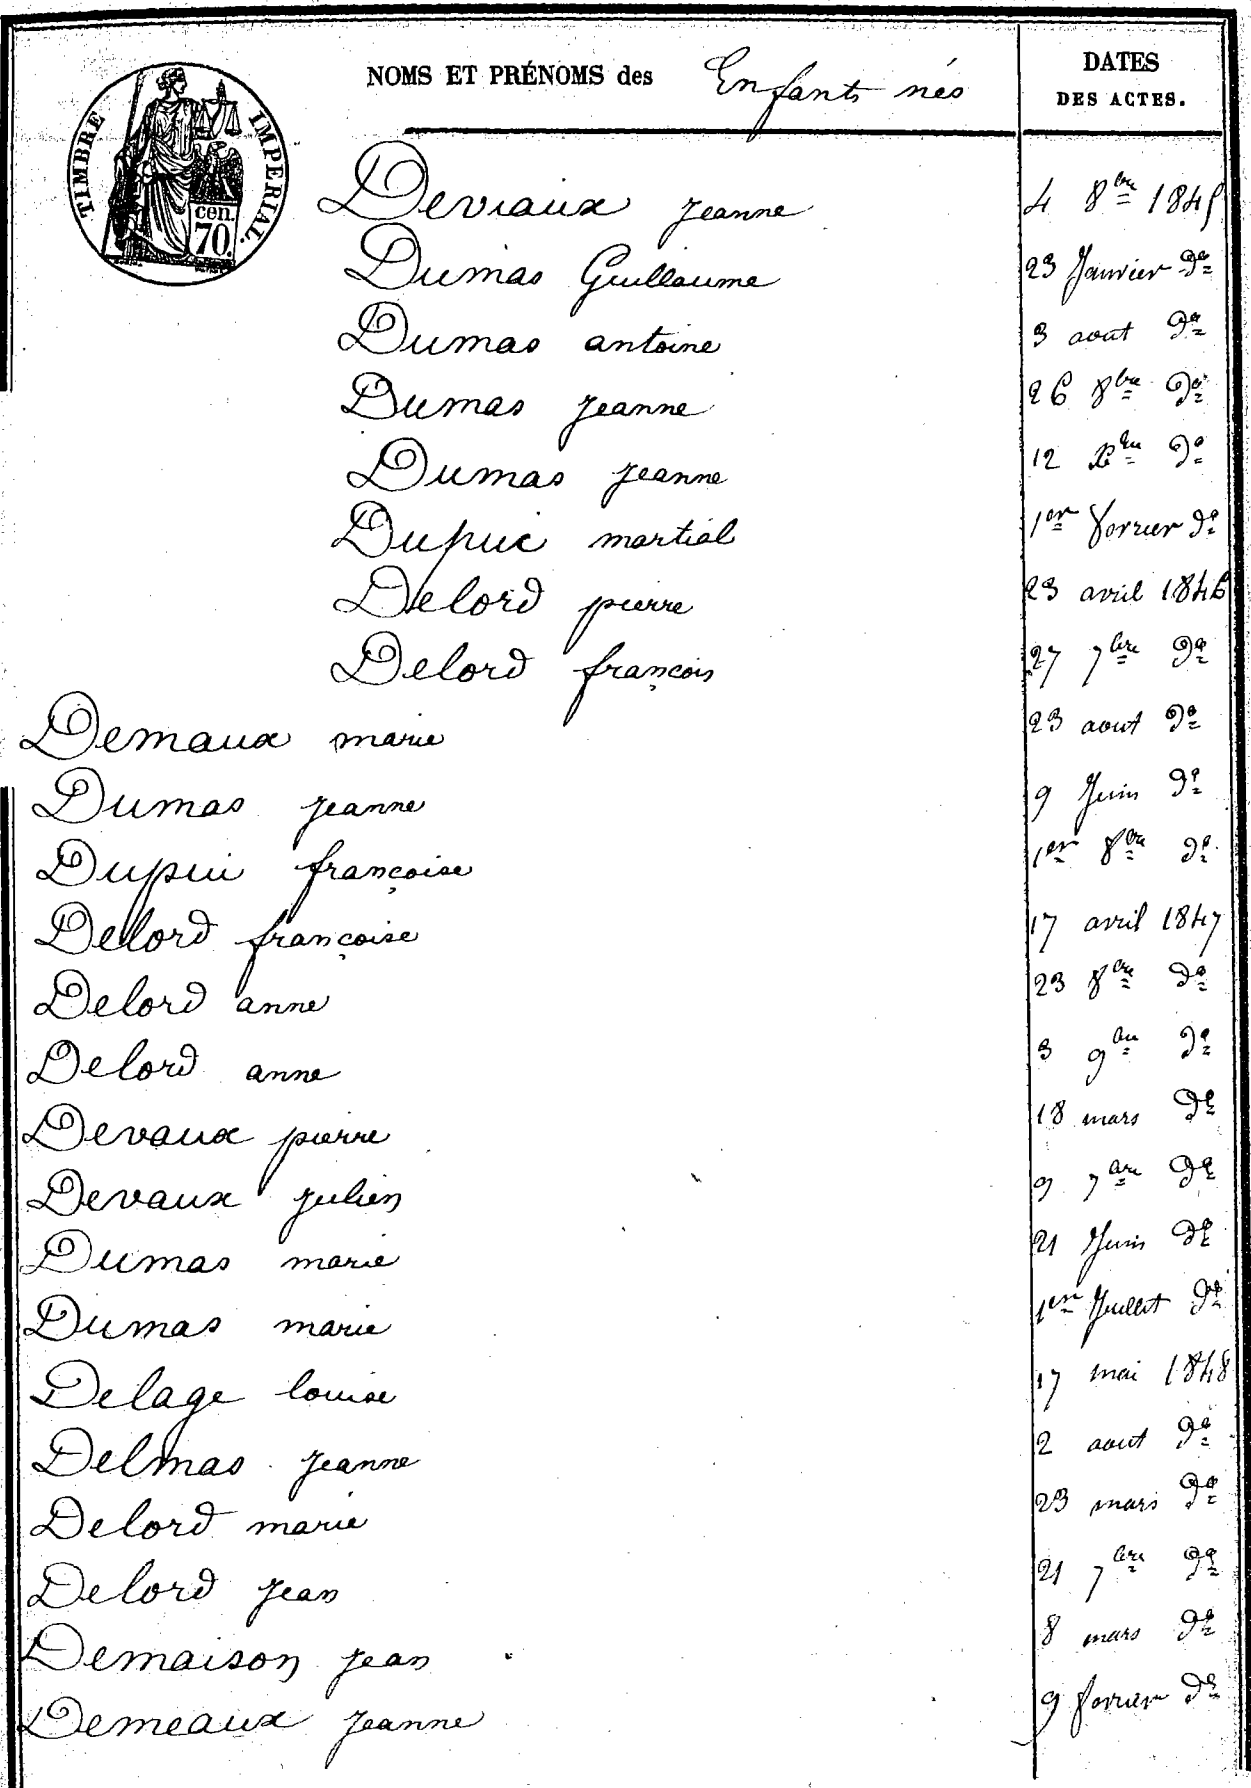 NOMS ET PRÉNOMS des Enfants nés
DATES
DES ACTES.
TIMBRE IMPERIAL.
cen.
70.
Deviaux jeanne 4 8bre 1845
Dumas Guillaume 23 Janvier do
Dumas antoine 3 aout do
Dumas jeanne 26 8bre do
Dumas jeanne 12 Xbre do
Dupuic martial 1er fevrier do
Delord pierre 23 avril 1846
Delord françois 27 7bre do
Demaux marie 23 aout do
Dumas jeanne 9 Juin do
Dupui françoise 1er 8bre do
Delord françoise 17 avril 1847
Delord anne 23 8bre do
Delord anne 3 9bre do
Devaux pierre 18 mars do
Devaux julien 9 7bre do
Dumas marie 21 Juin do
Dumas marie 1er Juillet do
Delage louise 17 mai 1848
Delmas jeanne 2 aout do
Delord marie 23 mars do
Delord jean 21 7bre do
Demaison jean 8 mars do
Demeaux jeanne 9 fevrier do